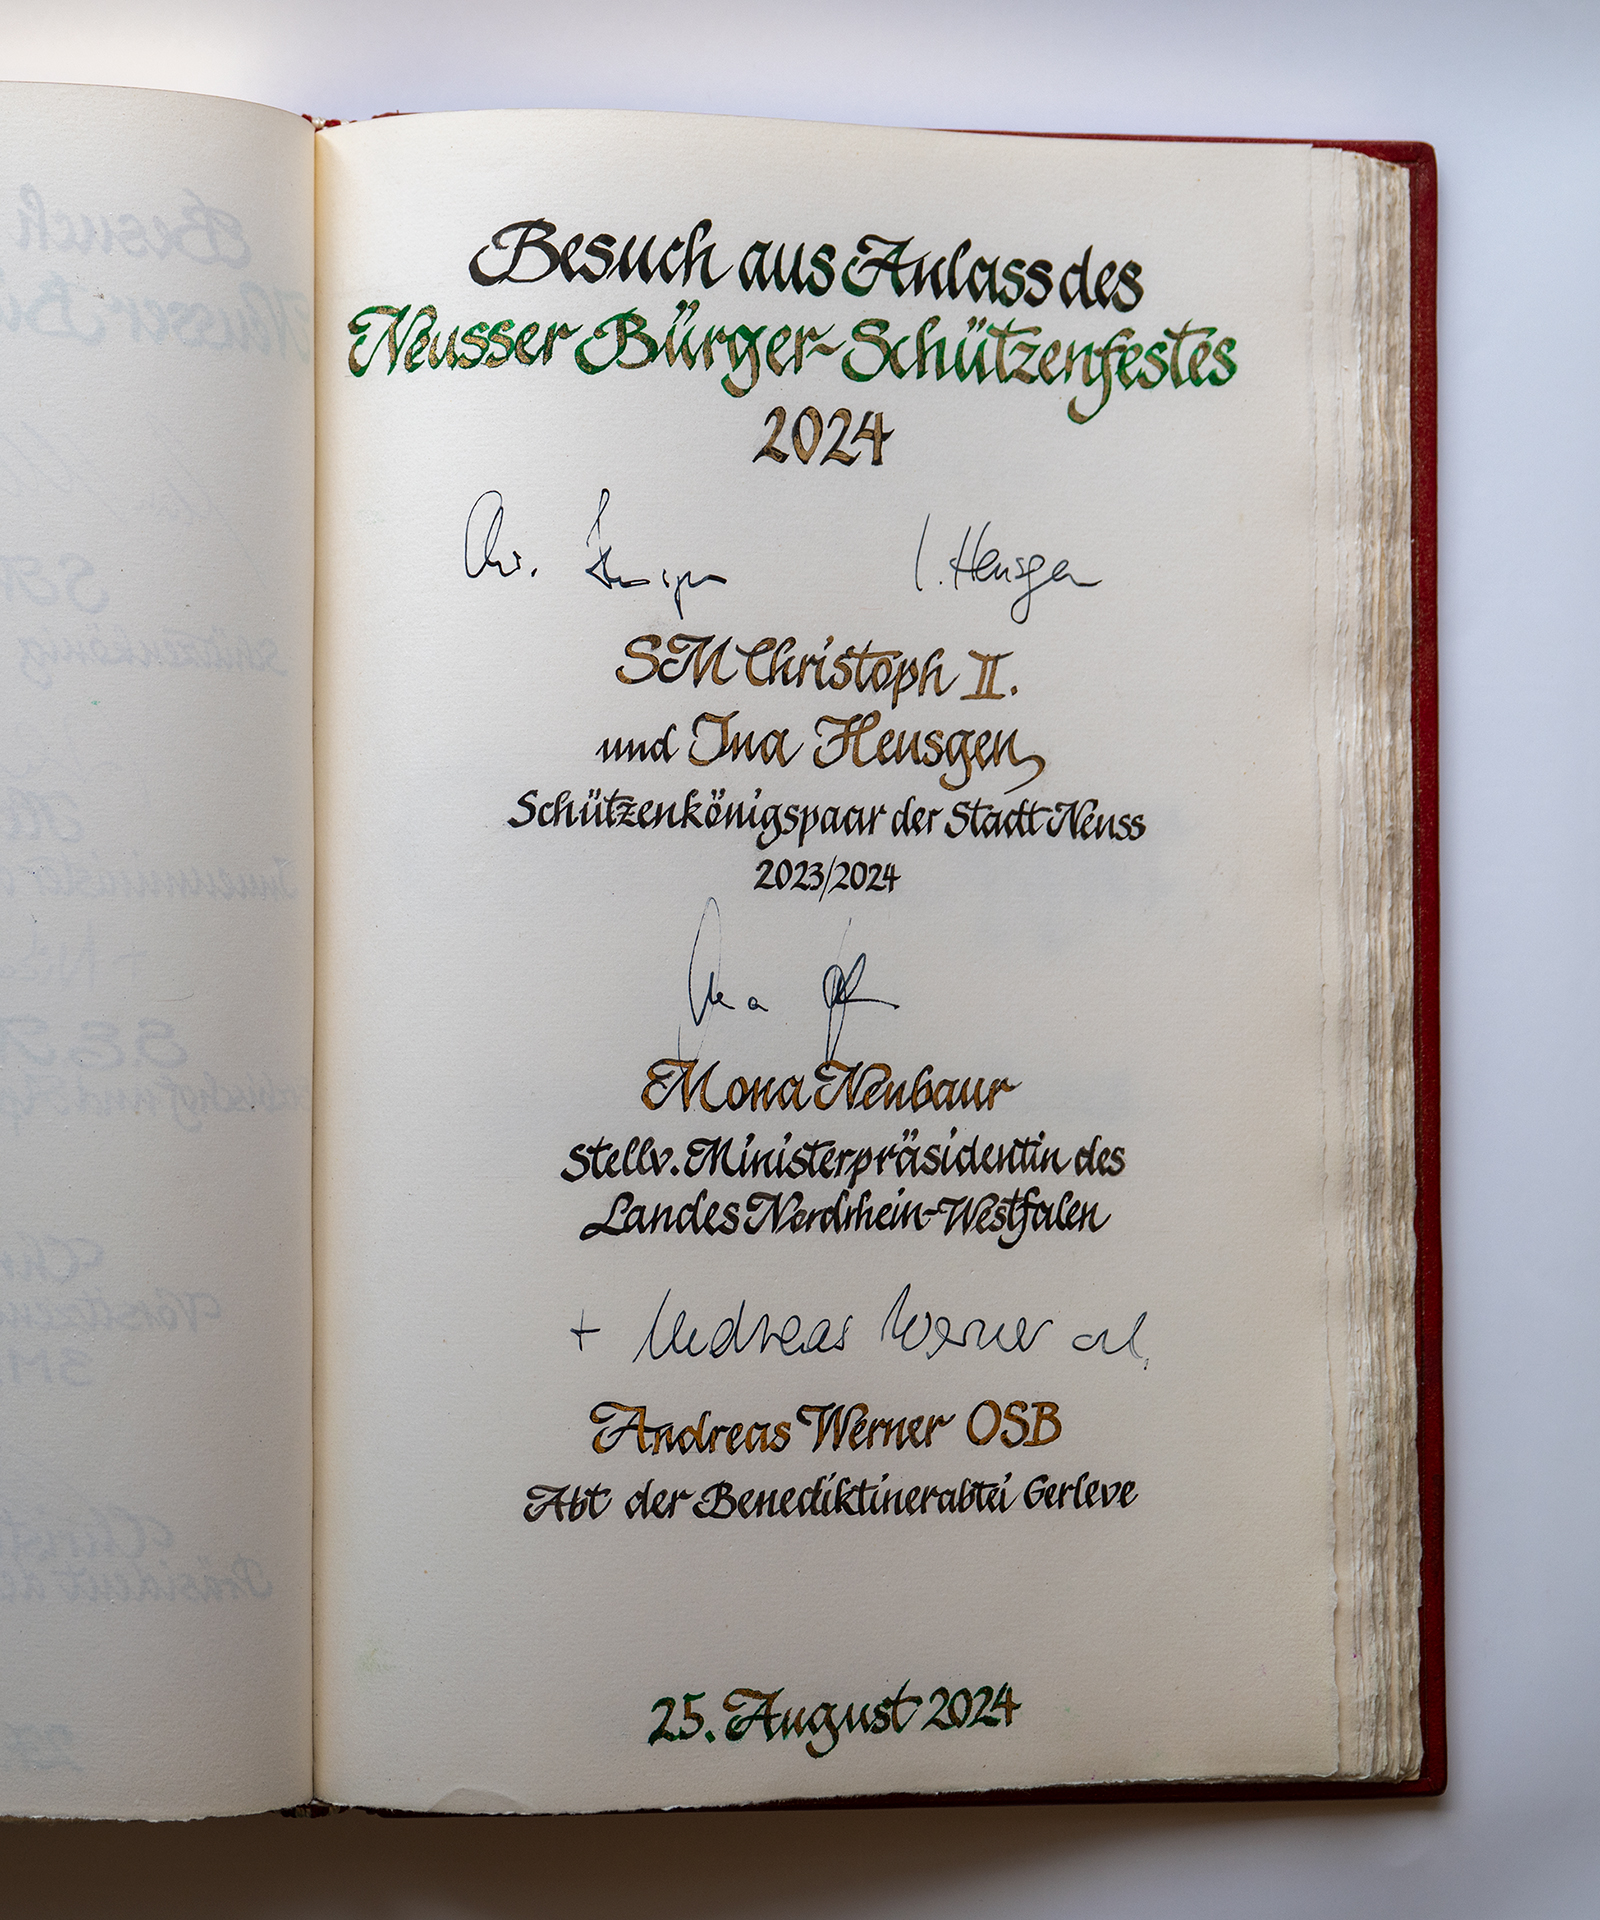 Besuch aus Anlass des
Neusser Bürger-Schützenfestes
2024
I. Heusgen
SM Christoph II.
und Ina Heusgen
Schützenkönigspaar der Stadt Neuss
2023/2024
Mona Neubaur
Stellv. Ministerpräsidentin des
Landes Nordrhein-Westfalen
+ Andreas Werner
Andreas Werner OSB
Abt der Benediktinerabtei Gerleve
25. August 2024